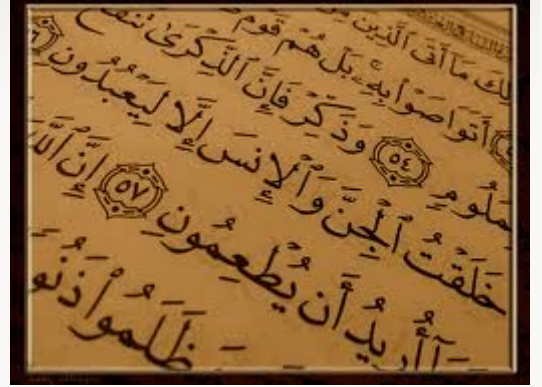 لِكَ مَآ أَتَى ٱلَّذِينَ مِن
أَتَوَاصَوْا۟ بِهِۦ ۚ بَلْ هُمْ قَوْمٌ
مَلُومٍ ٥٤ وَذَكِّرْ فَإِنَّ ٱلذِّكْرَىٰ تَنفَعُ
خَلَقْتُ ٱلْجِنَّ وَٱلْإِنسَ إِلَّا لِيَعْبُدُونِ ٥٦
آ أُرِيدُ أَن يُطْعِمُونِ ٥٧ إِنَّ ٱللَّ
ظَلَمُوا۟ ذَنُو